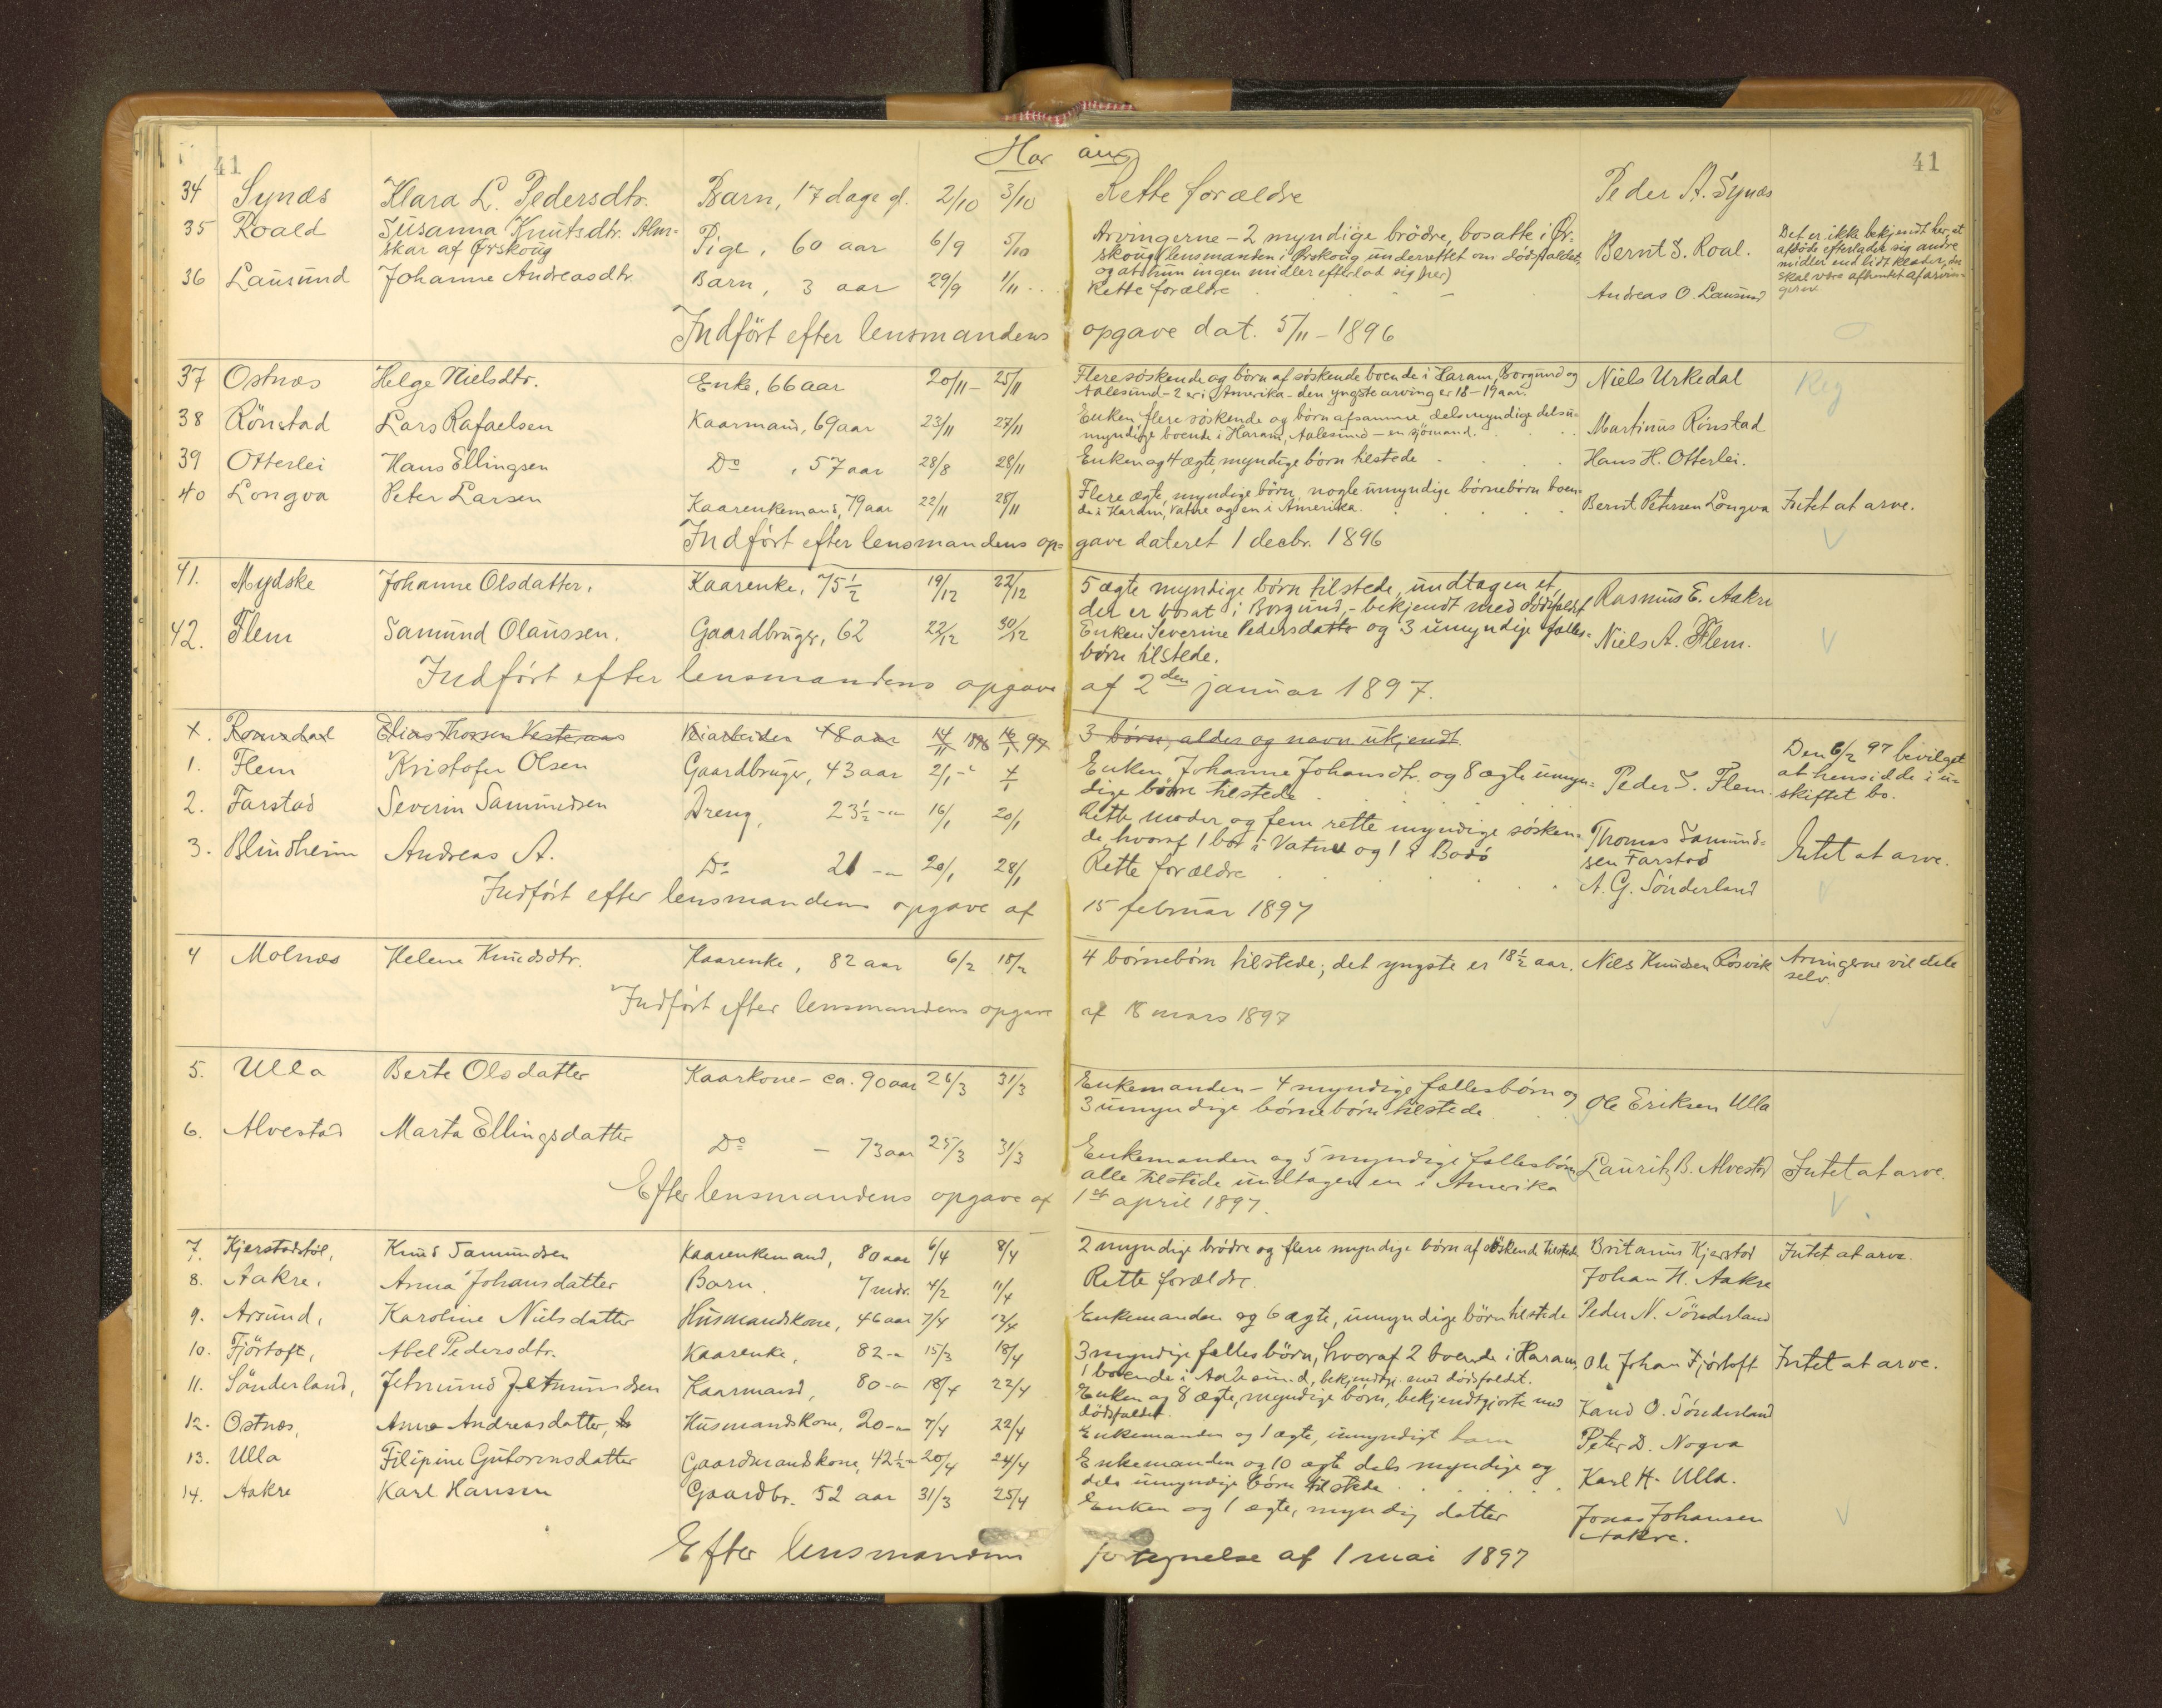 41 Har am 41
34 Synæs Klara L. Pedersdtr. Barn, 17 dage gl. 2/10 3/10 Rette forældre Peder A. Synæs
35 Roald Susanna Knutsdtr. Alm-
skar af Ørskoug Pige, 60 aar 6/9 5/10 Arvingerne - 2 myndige brödre, bosatte i Ør-
skoug (lensmanden i Ørskoug underrettet om dödsfaldet,
og at hun ingen midler efterlod sig her) Bernt S. Roal. Det er ikke bekjendt her, at
afdöde efterlader sig andre
midler end lidt klæder, der
skal være afhentet af arvin-
gerne
36 Lausund Johanne Andreasdtr. Barn, 3 aar 29/9 1/11 Rette forældre Andreas O. Lausund
Indfört efter lensmandens opgave dat. 5/11 - 1896
37 Ostnæs Helge Nielsdtr. Enke, 66 aar 20/11 - 25/11 Flere söskende og börn af söskende boende i Haram, Borgund og
Aalesund - 2 er i Amerika - den yngste arving er 18-19 aar. Niels Urkedal Reg
38 Rönstad Lars Rafaelsen Kaarmand, 69 aar 23/11 27/11 Enken, flere söskende og börn af samme, dels myndige dels u-
myndige boende i Haram, Aalesund - en sjömand. Martinus Rönstad
39 Otterlei Hans Ellingsen Do, 57 aar 28/8 28/11 Enken og 4 ægte, myndige börn tilstede Hans H. Otterlei.
40 Longva Peter Larsen Kaarenkemand, 79 aar 22/11 28/11 Flere ægte, myndige börn, nogle umyndige börnebörn boen-
de i Haram, Vatne og en i Amerika. Bernt Petersen Longva Intet at arve.
Indfört efter lensmandens op- gave dateret 1 decbr. 1896
41. Mydske Johanne Olsdatter, Kaarenke, 75 1/2 19/12 22/12 5 ægte myndige börn tilstede, undtagen et
der er bosat i Borgund, - bekjendt med dödsfaldet Rasmus E. Aakre
42. Flem Samund Olaussen. Gaardbruger, 62 22/12 30/12 Enken Severine Pedersdatter og 3 umyndige fælles-
börn tilstede. Niels A. Flem.
Indfört efter lensmandens opgave af 2den januar 1897.
+. Romsdal Elias Thorsen Vesteraas 48 aar 14/11 1896 16/1 97 3 börn, alder og navn ukjendt
1. Flem Kristofer Olsen Gaardbruger, 43 aar 2/1 4/1 Enken, Johanne Johansdtr. og 8 ægte umyn-
dige börn tilstede Peder S. Flem. Den 6/2 97 bevilget
at hensidde i u-
skiftet bo.
2. Farstad Severin Samundsen Dreng, 23 1/2 - " 16/1 20/1 Rette moder og fem rette myndige sösken-
de hvoraf 1 bor i Vatne og 1 i Bodö Thomas Samund-
sen Farstad Intet at arve.
3. Blindheim Andreas A. Do 21 - " 20/1 28/1 Rette forældre A. G. Sönderland
Indfört efter lensmandens opgave af 15 februar 1897
4 Molnæs Helene Knudsdtr. Kaarenke, 82 aar 6/2 18/2 4 börnebörn tilstede; det yngste er 18 1/2 aar. Niels Knudsen Rösvik Arvingerne vil dele
selv.
Indfört efter lensmandens opgave af 18 mars 1897
5. Ulla Berte Olsdatter Kaarkone - ca. 90 aar 26/3 31/3 Enkemanden - 4 myndige fællesbörn og
3 umyndige börnebörn tilstede Ole Eriksen Ulla
6. Alvestad Marta Ellingsdatter Do - 73 aar 25/3 31/3 Enkemanden og 5 myndige fællesbörn
alle tilstede undtagen en i Amerika Lauritz B. Alvestad Intet at arve.
Efter lensmandens opgave af 1st april 1897.
7. Kjerstadstöl, Knud Samundsen Kaarenkemand, 80 aar 6/4 8/4 2 myndige brödre og flere myndige börn af söskende tilstede Britanus Kjerstad Intet at arve.
8. Aakre, Anna Johansdatter Barn. 7 mdr. 4/2 11/4 Rette forældre. Johan H. Aakre
9. Arsund, Karoline Nielsdatter Husmandskone, 46 aar 7/4 12/4 Enkemanden og 6 ægte, umyndige börn tilstede Peder N. Sönderland
10. Fjörtoft, Abel Pedersdtr. Kaarenke, 82 - " 15/3 18/4 3 myndige fællesbörn, hvoraf 2 boende i Haram,
1 boende i Aalesund, bekjendtgj. med dödsfaldet. Ole Johan Fjörtoft Intet at arve.
11. Sönderland, Jetmund Jetmundsen Kaarmand, 80 - " 18/4 22/4 Enken og 8 ægte, myndige börn, bekjendtgjorte med
dödsfaldet. Knud O. Sönderland
12. Ostnæs, Anne Andreasdatter, Husmandskone, 20 - " 7/4 22/4 Enkemanden og 1 ægte, umyndigt barn Peter D. Nogva
13. Ulla Filipine Gutormsdatter Gaardmandskone, 42 1/2 - 20/4 24/4 Enkemanden og 10 ægte dels myndige og
dels umyndige börn tilstede Karl H. Ulla.
14. Aakre Karl Hansen Gaardbr. 52 aar 31/3 25/4 Enken og 1 ægte, myndig datter Jonas Johansen
Aakre.
Efter lensmandens fortegnelse af 1 mai 1897